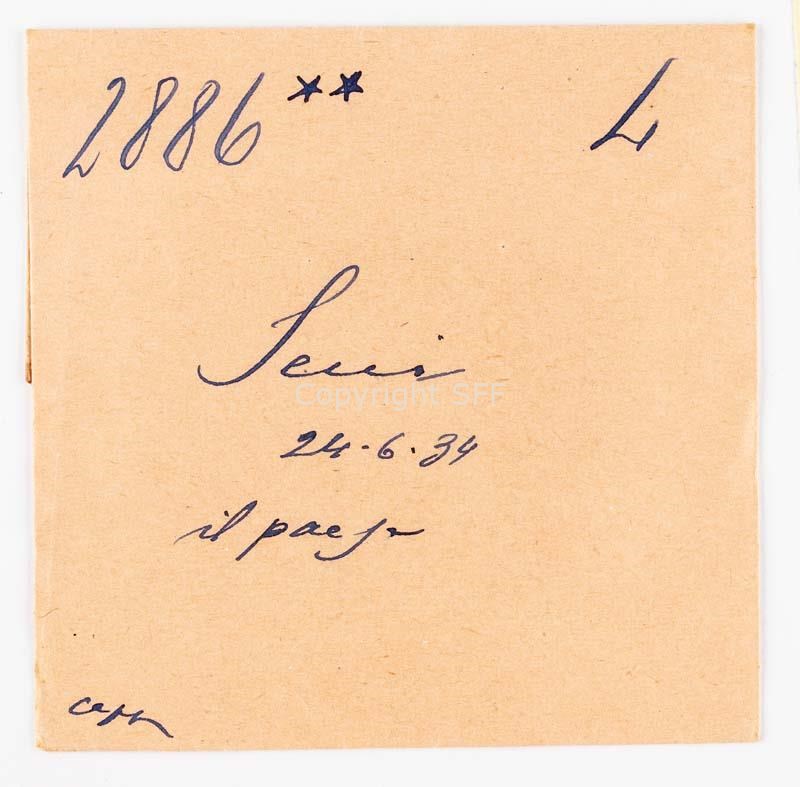 2886 ** 4
Seui
Copyright SFF
24-6-34
il paese